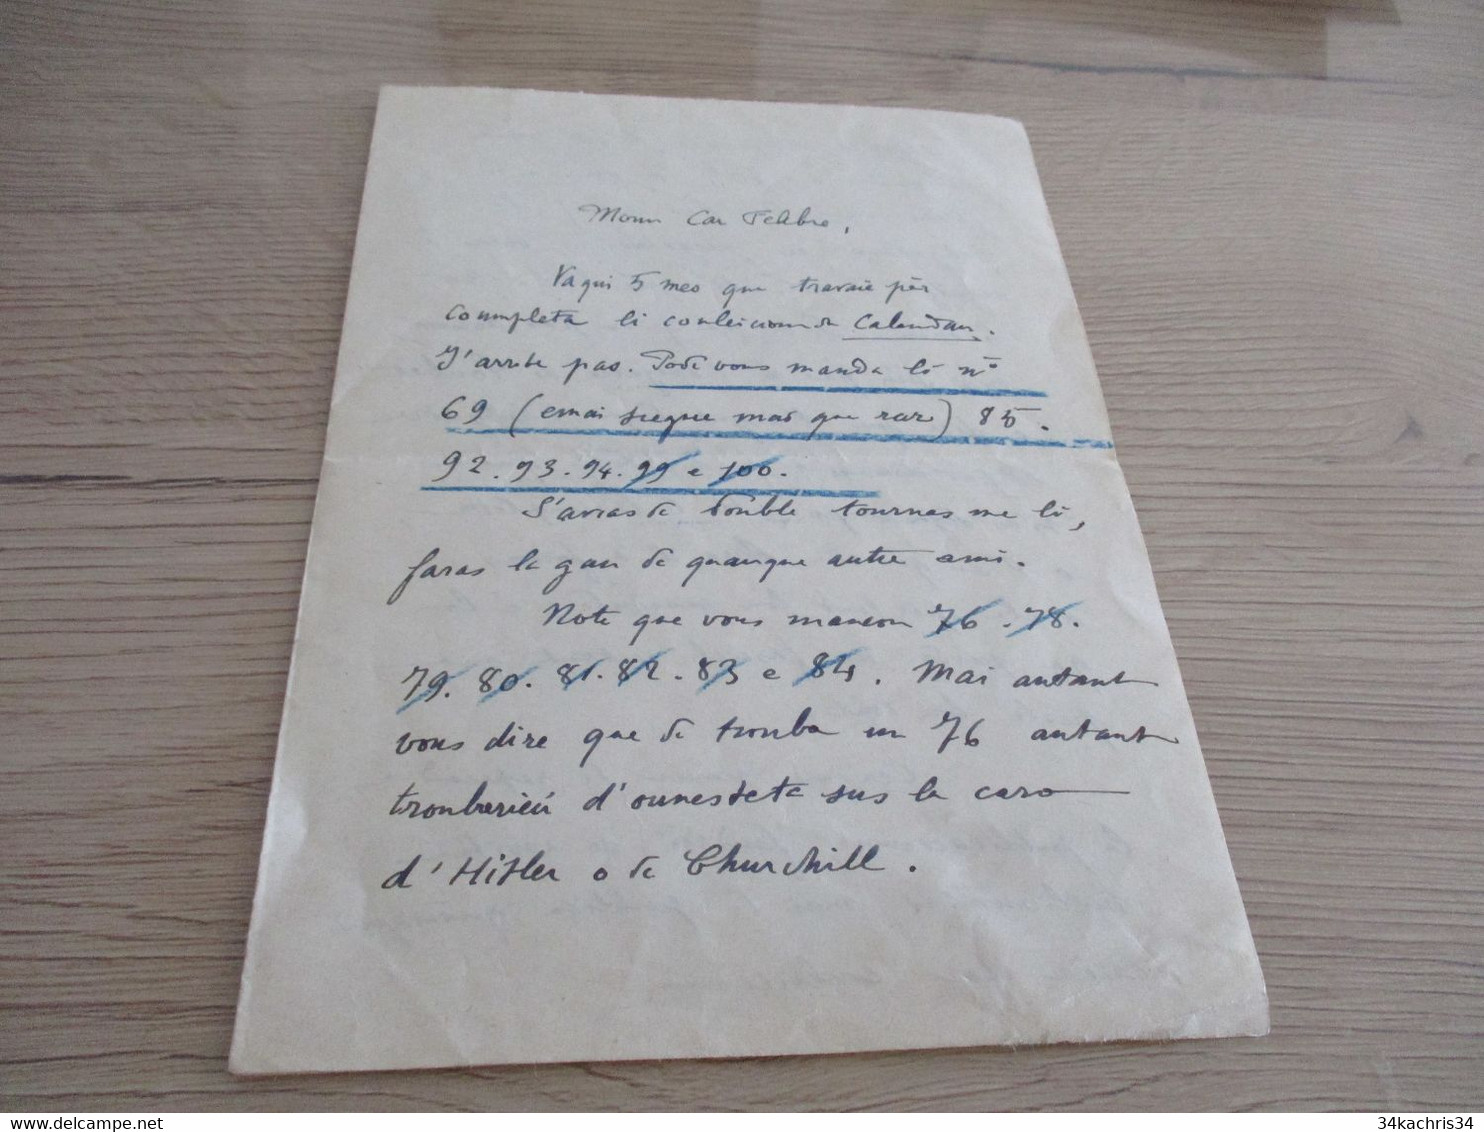 Moun Car Telabre,
Vaqui 5 mes que travaie pèr
coumpleta li couleicioun de Calendau.
J'arribe pas. Pode vous manda li nos
69 (emai siegue mai que rare) 85.
92.93.94.99 e 100.
S'avias de double tournas me li,
faras la gau de quauque autre ami.
Note que vous mancon 76.78.
79.80.81.82.83 e 84. Mai autant
vous dire que de trouba un 76 autant
troubarieù d'ounesteta sus la caro
d'Hitler o de Churchill.
34kachris34